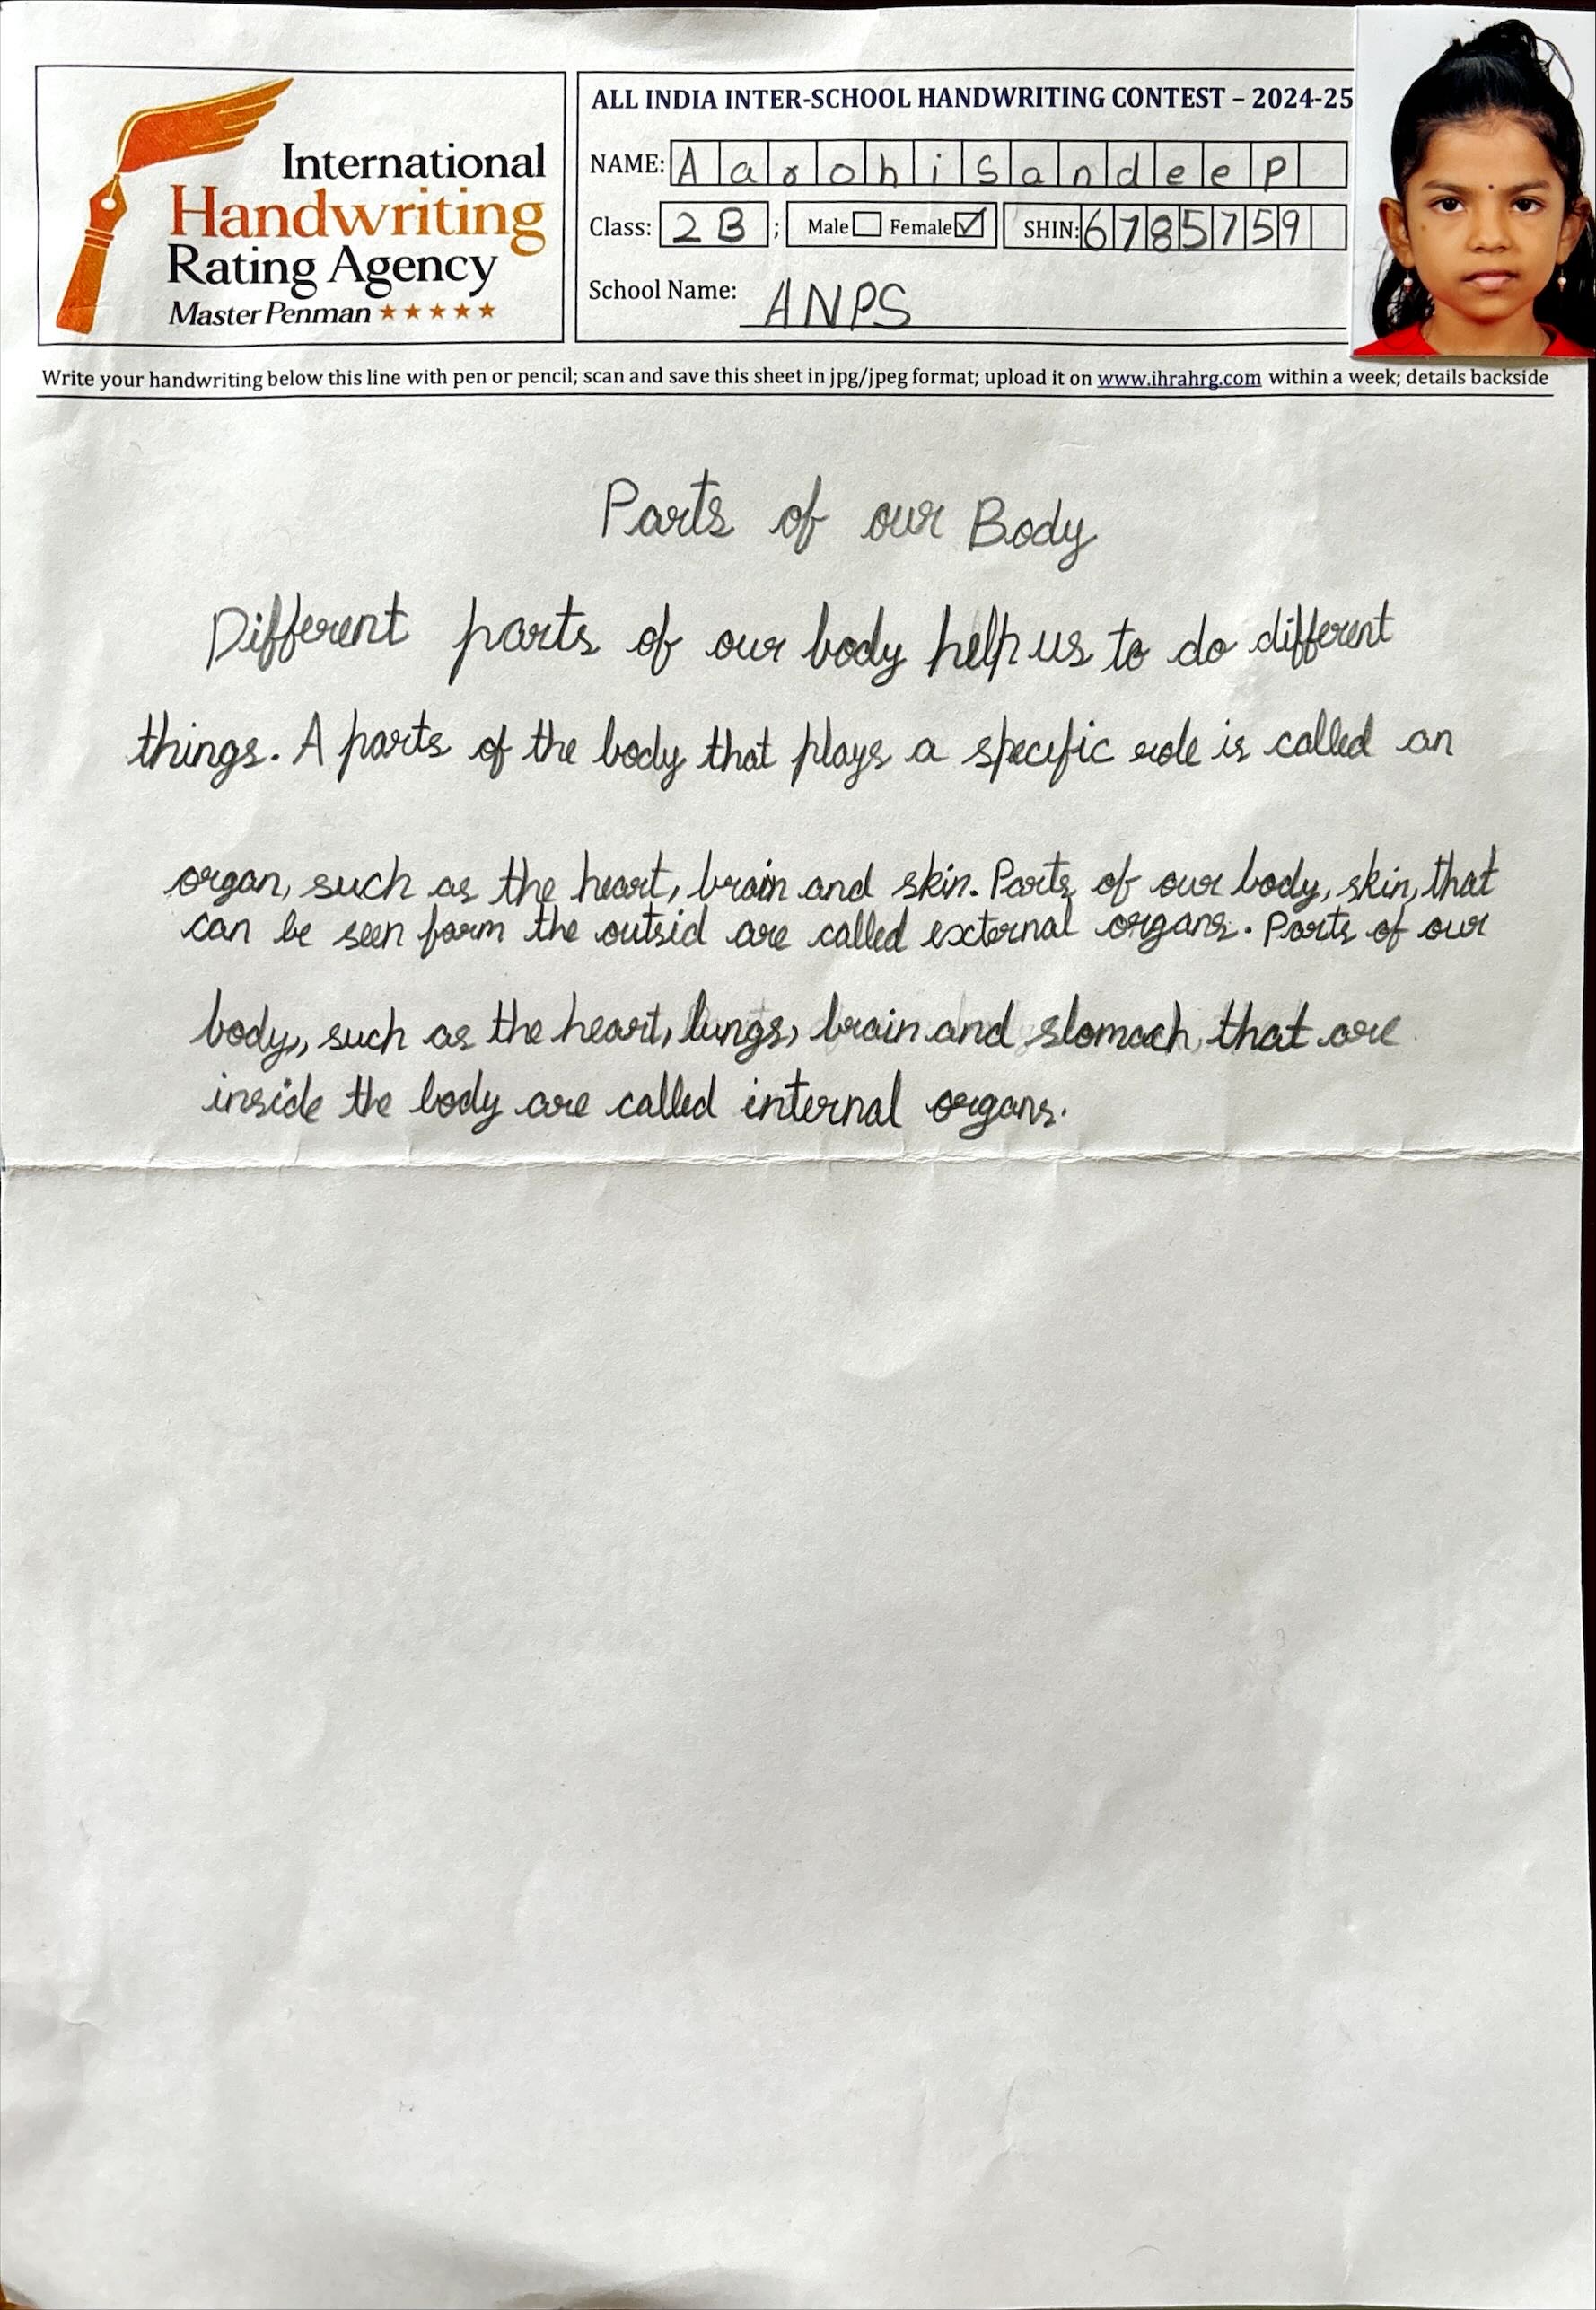 International
Handwriting
Rating Agency
Master Penman ★★★★★
ALL INDIA INTER-SCHOOL HANDWRITING CONTEST – 2024-25
NAME: Aarohi Sandeep
Class: 2 B ; Male ☐ Female ☑ SHIN: 6785759
School Name: ANPS
Write your handwriting below this line with pen or pencil; scan and save this sheet in jpg/jpeg format; upload it on www.ihrahrg.com within a week; details backside
Parts of our Body
Different parts of our body help us to do different
things. A parts of the body that plays a specific role is called an
organ, such as the heart, brain and skin. Parts of our body, skin, that
can be seen farm the outsid are called external organs. Parts of our
body, such as the heart, lungs, brain and slomach, that are
inside the body are called internal organs.